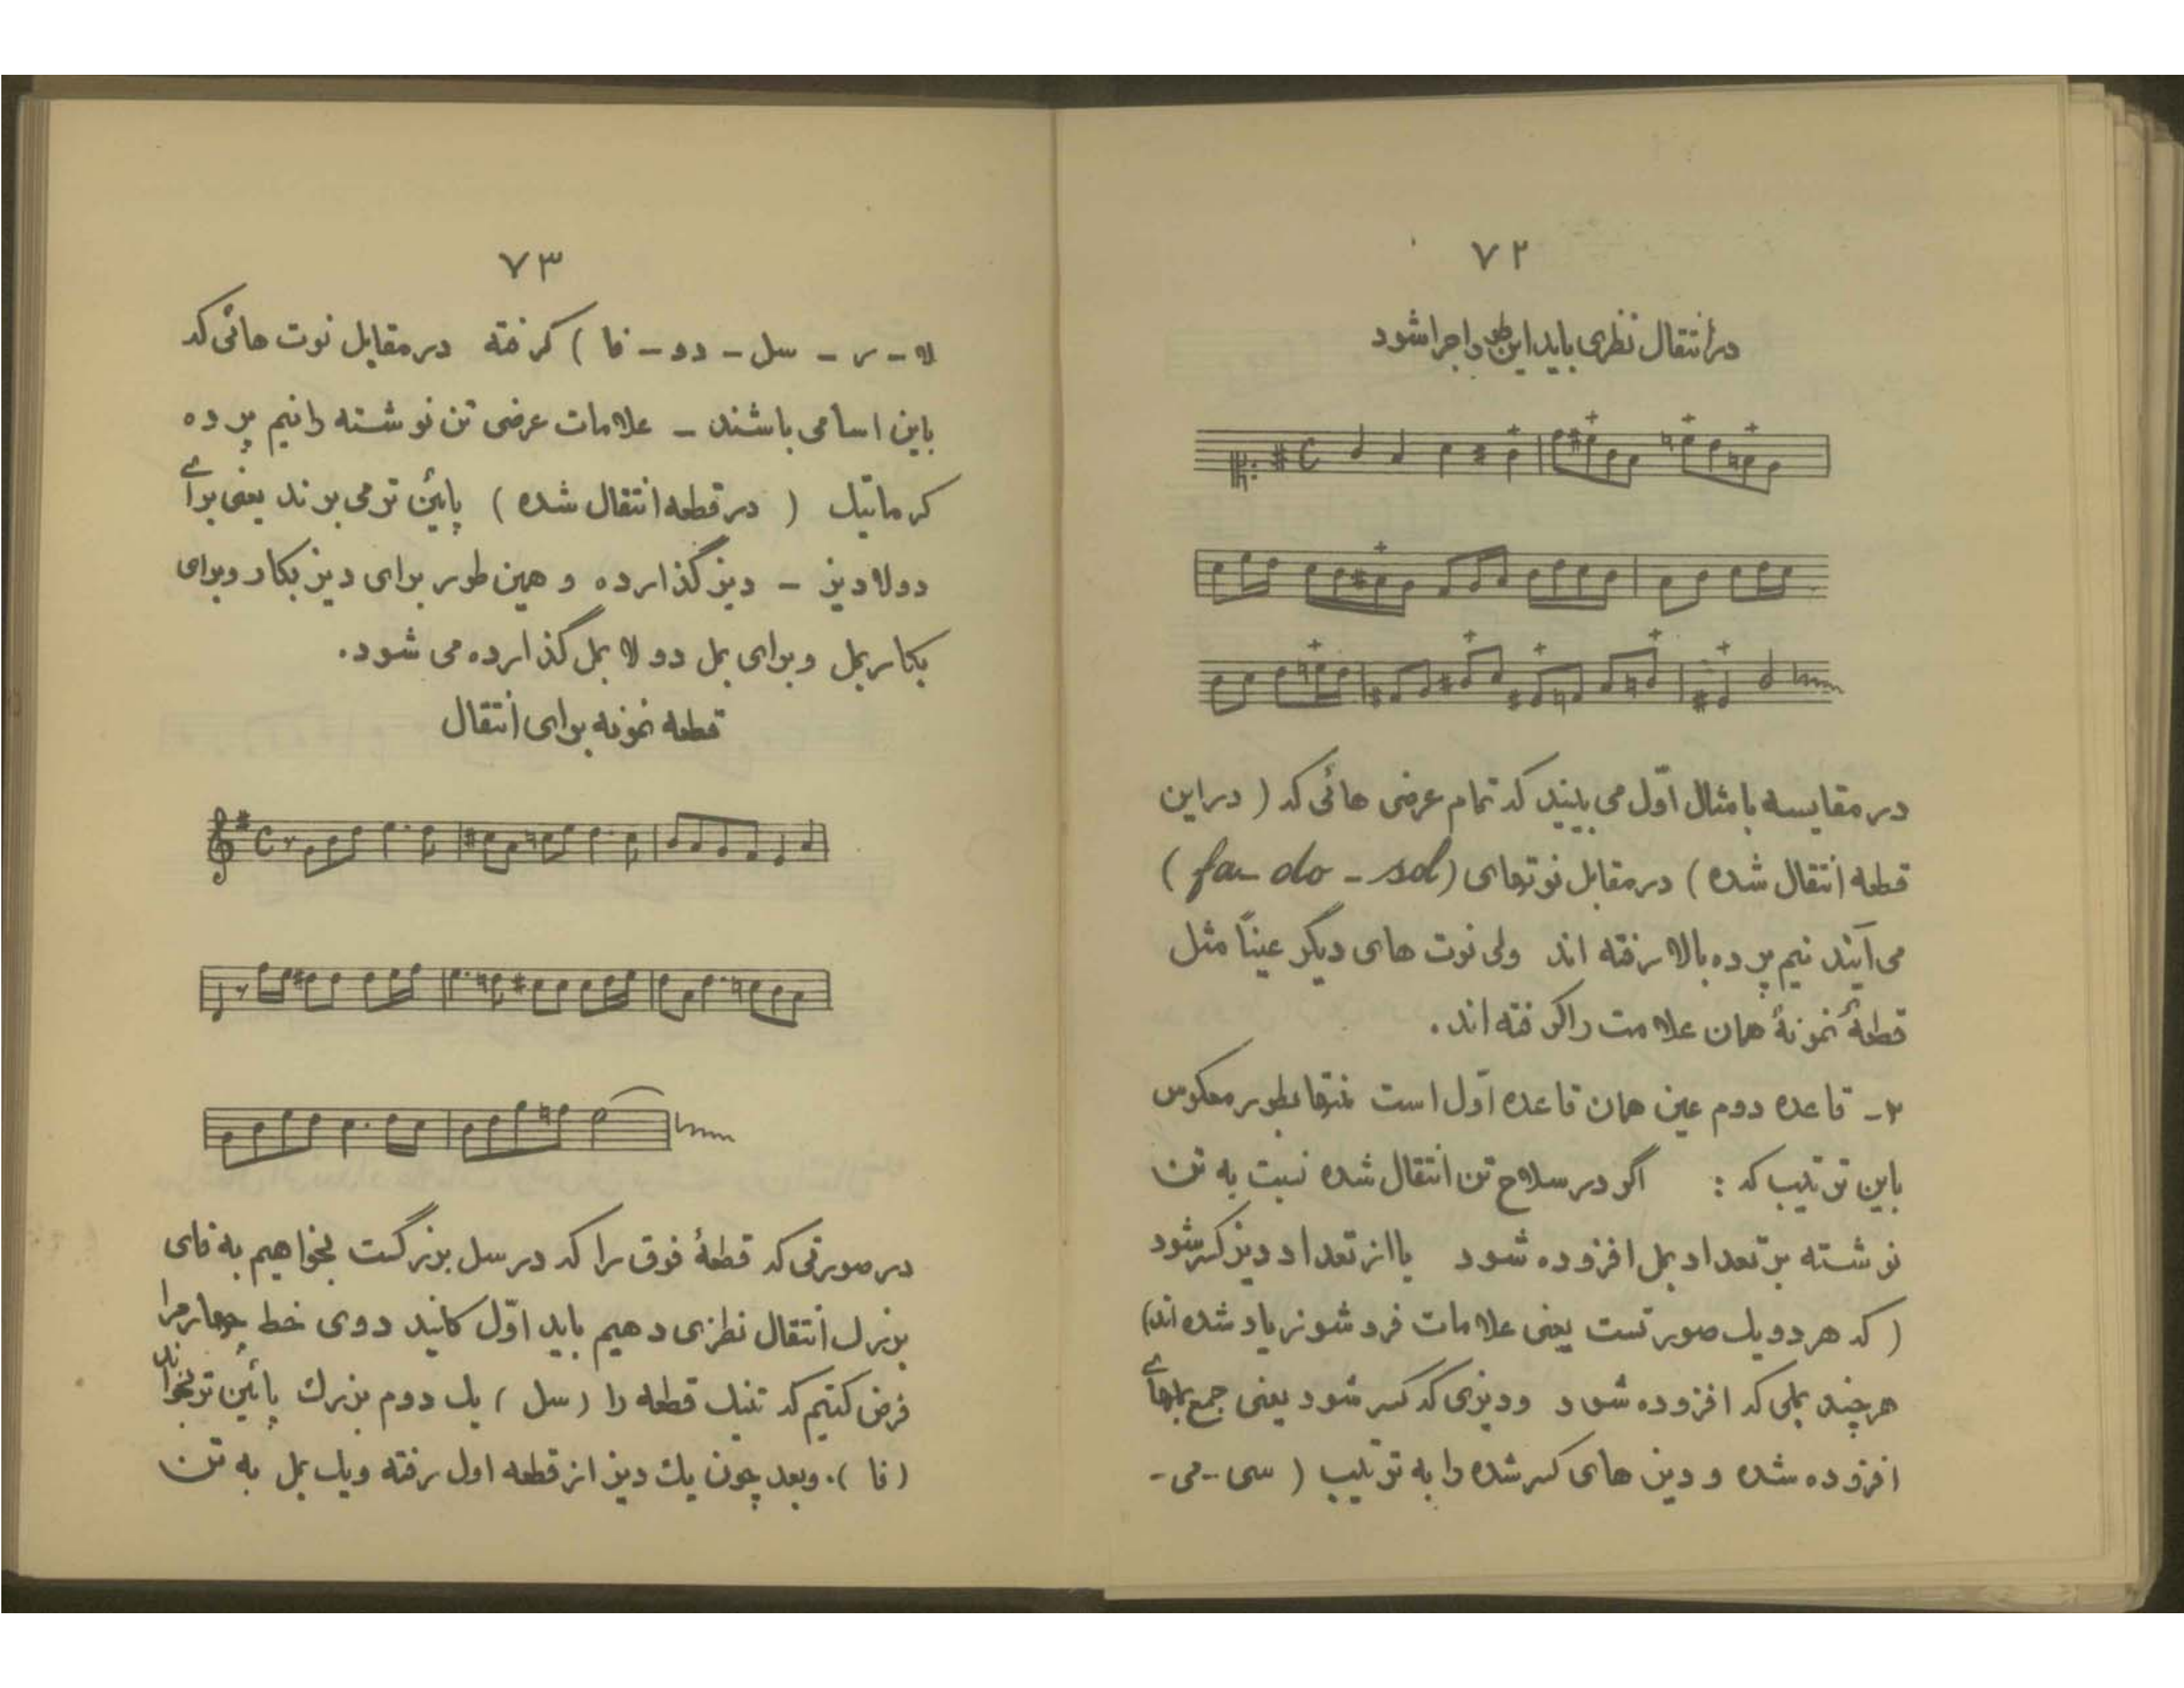 ۷۲
در انتقال نظری باید این طور اجرا شود
در مقایسه با مثال اوّل می بینید که تمام عرضی هائی که ( در این
قطعه انتقال شده ) در مقابل نوتهای (fa - do - sol )
می آیند نیم پرده بالا رفته اند ولی نوت های دیگر عیناً مثل
قطعهٔ نمونهٔ همان علامت را گرفته اند.
۲- قاعده دوم عین همان قاعده اوّل است منتها بطور معکوس
باین ترتیب که : اگر در سلاح تن انتقال شده نسبت به تن
نوشته بر تعداد بمل افزوده شود یا از تعداد دیز کسر شود
( که هر دو یک صورتست یعنی علامات فرد شونر یاد شده اند)
هر چند بملی که افزوده شود و دیزی که کسر شود یعنی جمع بملهای
افزوده شده و دیز های کسر شده را به ترتیب ( سی - می -
۷۳
لا - ر - سل - دو - فا ) گرفته در مقابل نوت هائی که
باین اسامی باشند - علامات عرضی تن نوشته را نیم پرده
کرماتیک ( در قطعه انتقال شده ) پائین تر می برند یعنی برای
دولادیز - دیز گذارده و همین طور برای دیز بکار و برای
بکار بمل و برای بمل دو لا بمل گذارده می شود.
قطعه نمونه برای انتقال
در صورتی که قطعهٔ فوق را که در سل بزرگست بخواهیم به فای
بزرک انتقال نظری دهیم باید اوّل کلید دوی خط چهارم را
فرض کنیم که تنیک قطعه را ( سل ) یک دوم بزرک پائین تر بخواند
( فا ). و بعد چون یک دیز از قطعه اول رفته و یک بمل به تن